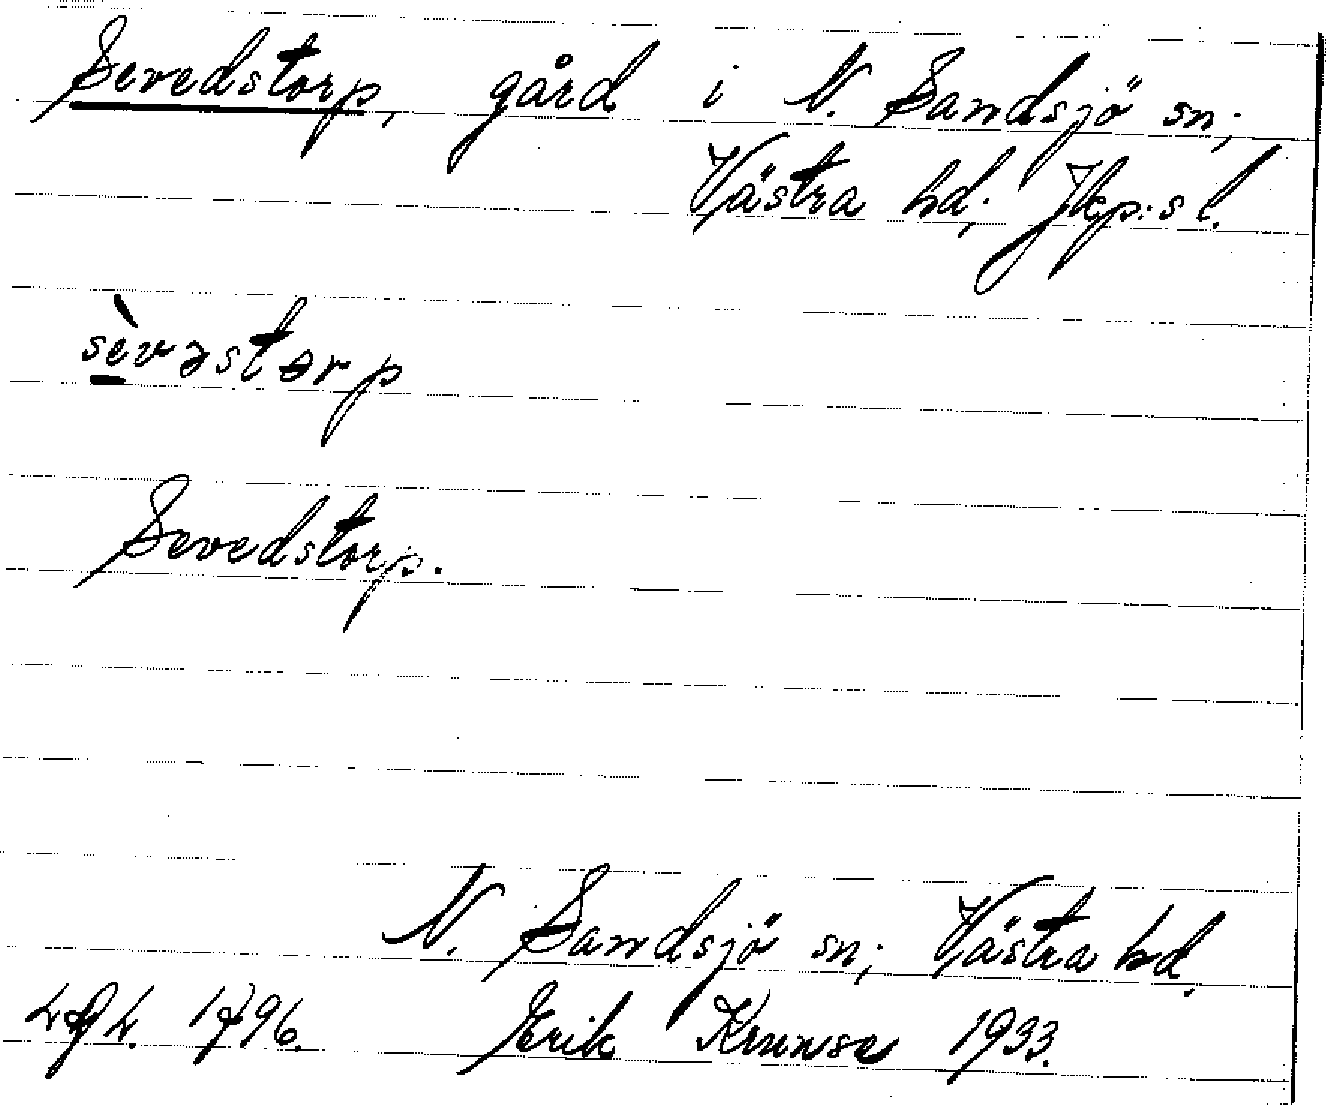 Sevedstorp, gård i N. Sandsjö sn;
Västra hd; Jkp:s l.
sèvəstərp
Sevedstorp.
N. Sandsjö sn; Västra hd.
1796. Erik Krunse 1933.